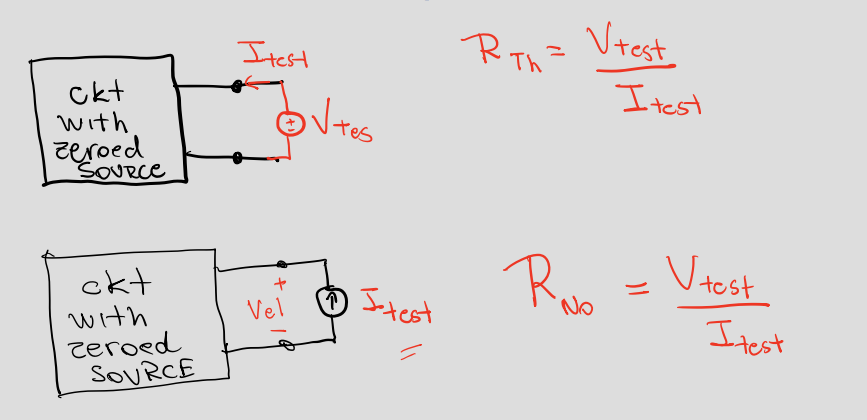 ckt
with
zeroed
SOURCE
Itest
+
−
Vtes
RTh = Vtest
Itest
ckt
with
zeroed
SOURCE
+
Vel
−
Itest
RNo = Vtest
Itest